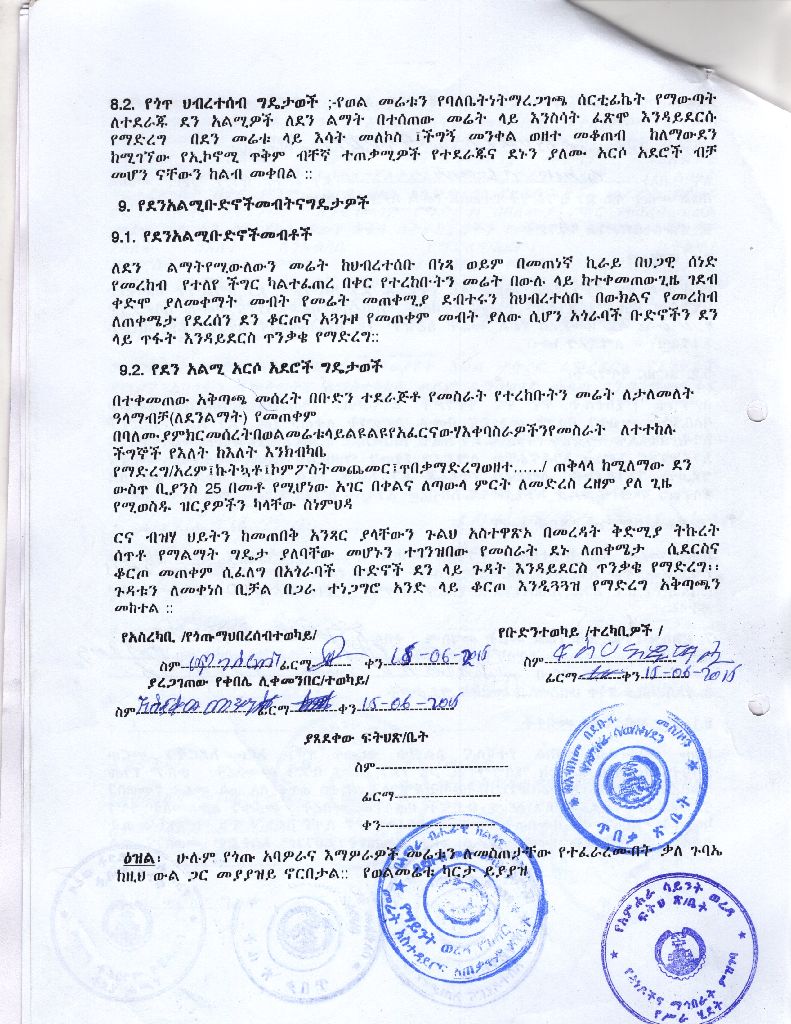 8.2. የጎጥ ህብረተሰብ ግዴታወች ;-የወል መሬቱን የባለቤትነትማረጋገጫ ሰርቲፊኬት የማውጣት
ለተደራጁ ደን አልሚዎች ለደን ልማት በተሰጠው መሬት ላይ እንስሳት ፈጽሞ እንዳይደርሱ
የማድረግ በደን መሬቱ ላይ እሳት መለኮስ ፤ችግኝ መንቀል ወዘተ መቆጠብ ከለማውደን
ከሚገኘው የኢኮኖሚ ጥቅም ብቸኛ ተጠቃሚዎች የተደራጁና ደኑን ያለሙ አርሶ አደሮች ብቻ
መሆን ናቸውን ከልብ መቀበል ::
9. የደንአልሚቡድኖችመብትናግዴታዎች
9.1. የደንአልሚቡድኖችመብቶች
ለደን ልማትየሚውለውን መሬት ከህብረተሰቡ በነጻ ወይም በመጠነኛ ኪራይ በህጋዊ ሰነድ
የመረከብ የተለየ ችግር ካልተፈጠረ በቀር የተረከቡትን መሬት በውሉ ላይ ከተቀመጠውጊዜ ገደብ
ቀድሞ ያለመቀማት መብት የመሬት መጠቀሚያ ደብተሩን ከህብረተሰቡ በውክልና የመረከብ
ለጠቀሜታ የደረሰን ደን ቆርጦና አጓጉዞ የመጠቀም መብት ያለው ሲሆን አጎራባች ቡድኖችን ደን
ላይ ጥፋት እንዳይደርስ ጥንቃቄ የማድረግ::
9.2. የደን አልሚ አርሶ አደሮች ግዴታወች
በተቀመጠው አቅጣጫ መሰረት በቡድን ተደራጅቶ የመስራት የተረከቡትን መሬት ለታለመለት
ዓላማብቻ(ለደንልማት) የመጠቀም
በባለሙያምክርመሰረትበወልመሬቱላይልዩልዩየአፈርናውሃእቀባስራዎችንየመስራት ለተተከሉ
ችግኞች የእለት ከእለት እንክብካቤ
የማድረግ/አረም፤ኩትኳቶ፤ኮምፖስትመጨመር፤ጥበቃማድረግወዘተ....../ ጠቅላላ ከሚለማው ደን
ውስጥ ቢያንስ 25 በመቶ የሚሆነው አገር በቀልና ለጣውላ ምርት ለመድረስ ረዘም ያለ ጊዜ
የሚወስዱ ዝርያዎችን ካላቸው ስነምህዳ
ርና ብዝሃ ህይትን ከመጠበቅ አንጻር ያላቸውን ጉልህ አስተዋጽኦ በመረዳት ቅድሚያ ትኩረት
ሰጥቶ የማልማት ግዴታ ያለባቸው መሆኑን ተገንዝበው የመስራት ደኑ ለጠቀሜታ ሲደርስና
ቆርጦ መጠቀም ሲፈለግ በአጎራባች ቡድኖች ደን ላይ ጉዳት እንዳይደርስ ጥንቃቄ የማድረግ፡፡
ጉዳቱን ለመቀነስ ቢቻል በጋራ ተነጋግሮ አንድ ላይ ቆርጦ እንዲጓጓዝ የማድረግ አቅጣጫን
መከተል ::
የአስረካቢ /የጎጡማህበረሰብተወካይ/ የቡድንተወካይ /ተረካቢዎች /
ስም ፊርማ ቀን 15-06-2015 ስም
ያረጋገጠው የቀበሌ ሊቀመንበር/ተወካይ/ ፊርማ ቀን 15-06-2015
ስም ፊርማ ቀን 15-06-2015
ያጸደቀው ፍትህጽ/ቤት
ስም------------------------------
ፊርማ------------------------
ቀን------------------------
ዕዝል፡ ሁሉም የጎጡ አባዎራና እማዎራዎች መሬቱን ለመስጠታቸው የተፈራረሙበት ቃለ ጉባኤ
ከዚህ ውል ጋር መያያዝይ ኖርበታል:: የወልመሬቱ ካርታ ይያያዝ
ጥበቃ ጽ ቤት
የአምሐራ ሳይንት ወረዳ
ፍትህ ጽ/ቤት